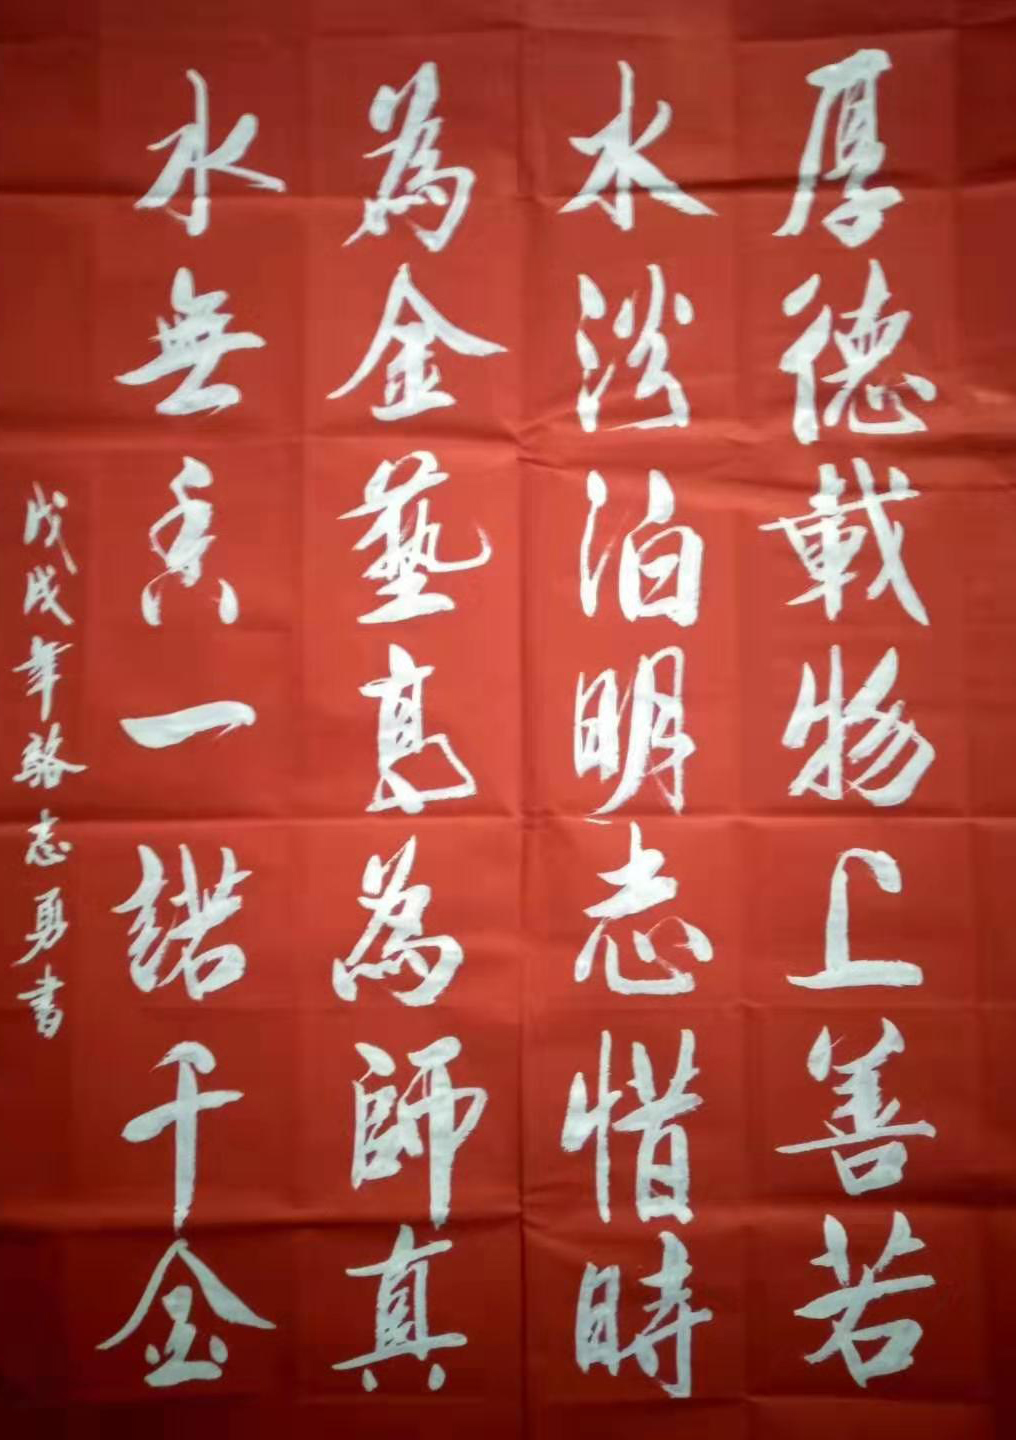 厚德載物上善若
水淡泊明志惜時
為金藝高為師真
水無香一諾千金
戊戌年駱志勇書